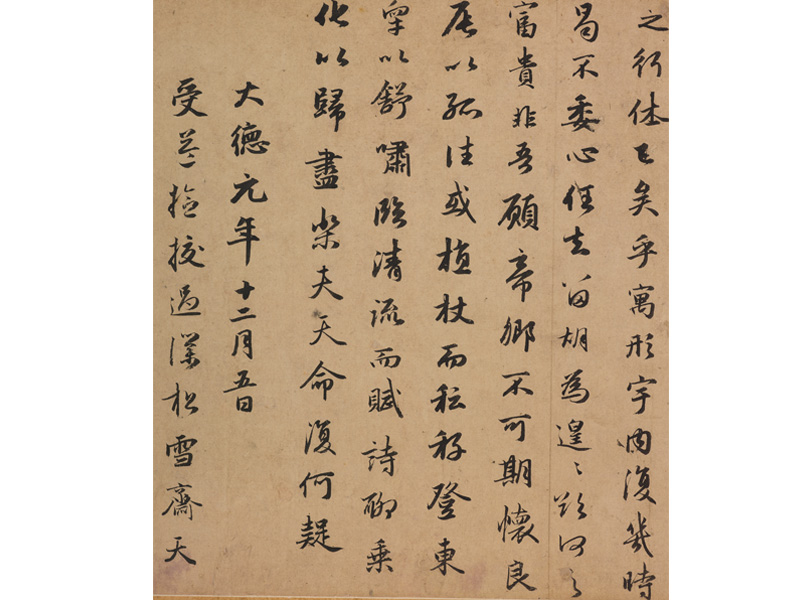 之行休已矣乎寓形宇內復幾時
曷不委心任去留胡為遑〻欲何之
富貴非吾願帝鄉不可期懷良
辰以孤往或植杖而耘耔登東
皋以舒嘯臨清流而賦詩聊乘
化以歸盡樂夫天命復何疑
大德元年十二月五日
受益撿挍過松雪齋天